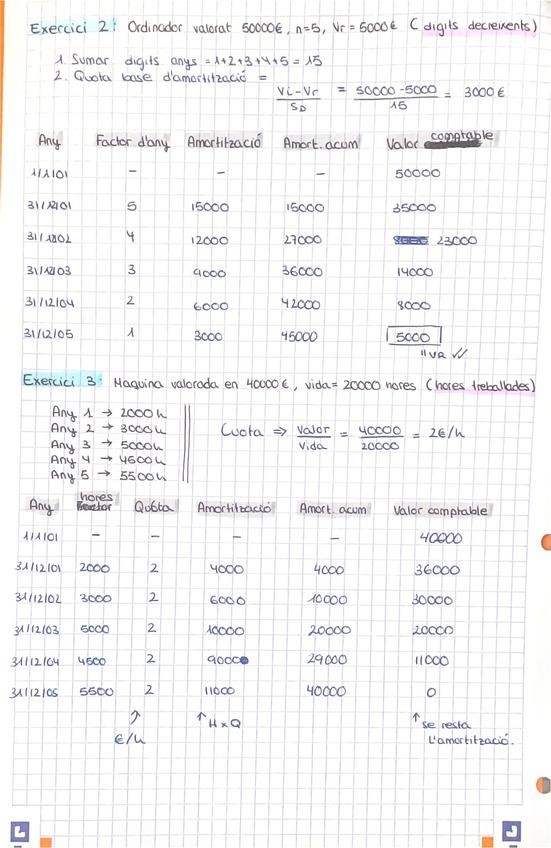 Exercici 2: Ordinador valorat 50000€, n=5, Vr = 5000€ ( digits decreixents)
1. Sumar digits anys = 1+2+3+4+5 = 15
2. Quota base d'amortització =
Vi-Vr / SD = 50000-5000 / 15 = 3000 €
Any Factor d'any Amortització Amort. acum Valor comptable
1/1/01 - - - 50000
31/12/01 5 15000 15000 35000
31/12/02 4 12000 27000 23000
31/12/03 3 9000 36000 14000
31/12/04 2 6000 42000 8000
31/12/05 1 3000 45000 5000
"VR
Exercici 3: Maquina valorada en 40000€, vida= 20000 hores (hores treballades)
Any 1 → 2000h
Any 2 → 3000h
Any 3 → 5000h
Any 4 → 4500h
Any 5 → 5500h
Cuota ⇒ Valor / Vida = 40000 / 20000 = 2€/h
Any hores Quota Amortització Amort. acum Valor comptable
1/1/01 - - - - 40000
31/12/01 2000 2 4000 4000 36000
31/12/02 3000 2 6000 10000 30000
31/12/03 5000 2 10000 20000 20000
31/12/04 4500 2 9000 29000 11000
31/12/05 5500 2 11000 40000 0
↑ €/h
↑ H x Q
↑ se resta
l'amortització.